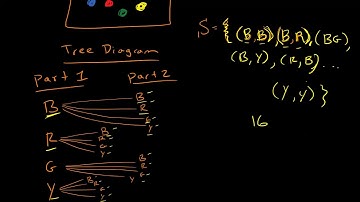 Tree Diagram
Part 1 Part 2
B B
R
G
Y
R B
R
G
Y
G B
R
G
Y
Y B
R
G
Y
S = { (B, B), (B, R), (BG)
(B, Y), (R, B), ...
(Y, Y) }
16